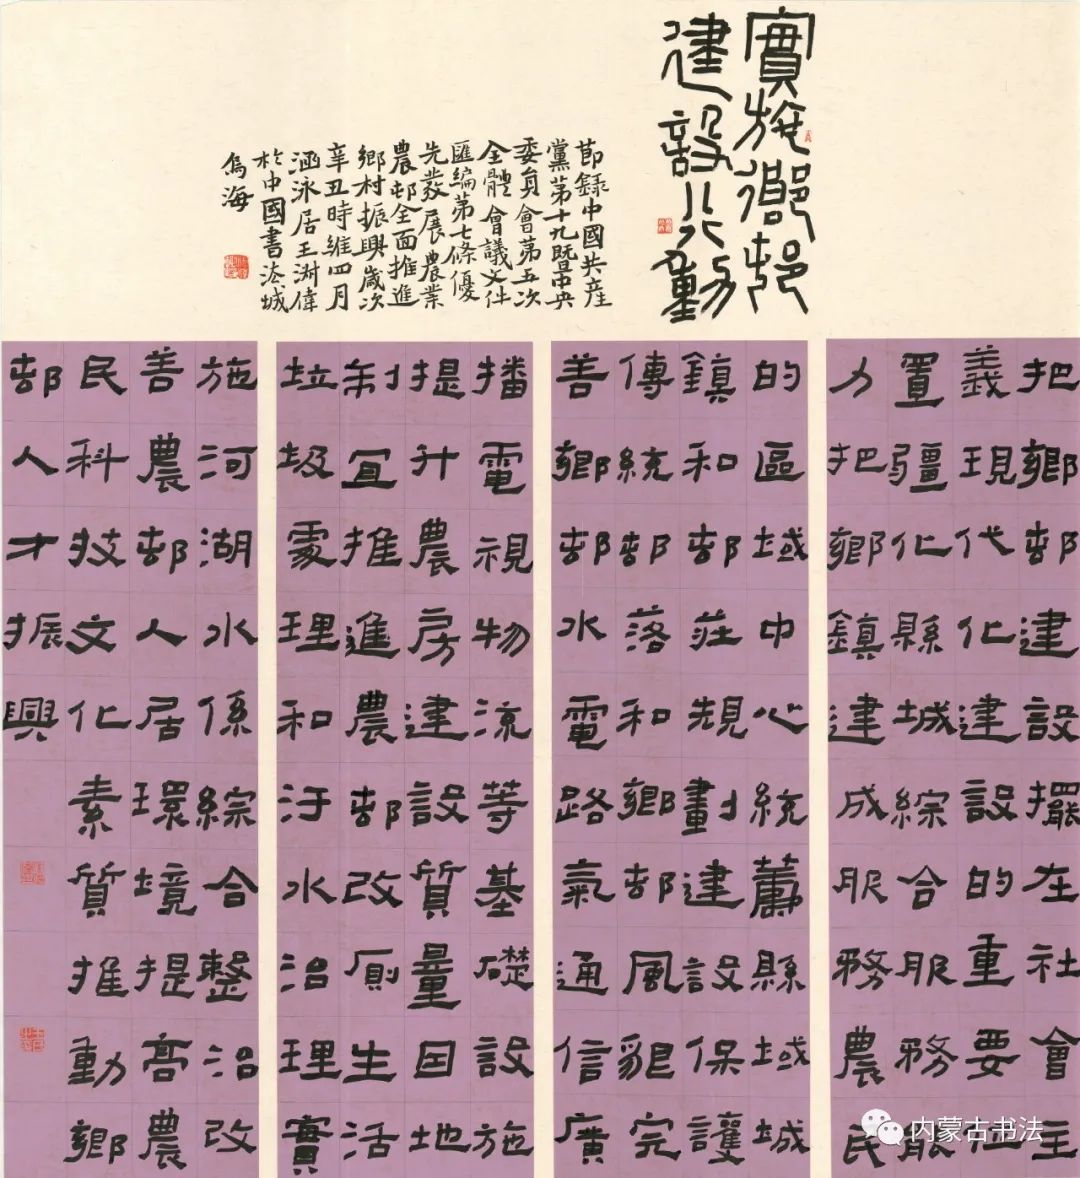 實施鄉邨
建設行動
節錄中國共産
黨第十九屆中央
委員會第五次
全體會議文件
匯編第七條優
先發展農業
農邨全面推進
鄉村振興歲次
辛丑時維四月
涵泳居王澍偉
於中國書法城
烏海
把鄉邨建設擺在社會主
義現代化建設的重要位
置彊化縣城綜合服務服
力把鄉鎮建成服務農民
的區域中心統籌縣域城
鎮和邨莊規劃建設保護
傳統邨落和鄉邨風貌完
善鄉邨水電路氣通信廣
播電視物流等基礎設施
提升農房建設質量因地
制宜推進農邨改厠生活
垃圾處理和污水治理實
施河湖水係綜合整治改
善農邨人居環境提高農
民科技文化素質推動鄉
邨人才振興
内蒙古书法